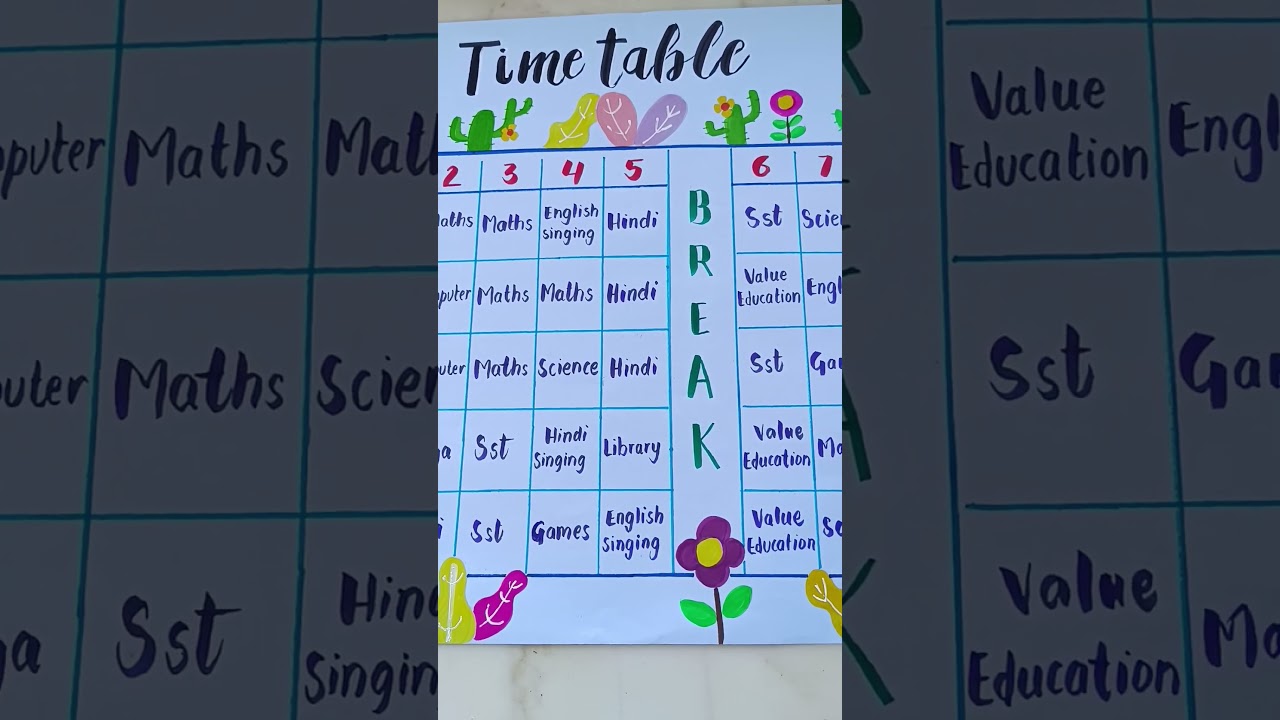 Time table
2 3 4 5 6 7
aths Maths English singing Hindi Sst Scien
puter Maths Maths Hindi Value Education Engl
uter Maths Science Hindi Sst Ga
a Sst Hindi Singing Library Value Education Ma
i Sst Games English Singing Value Education
BREAK